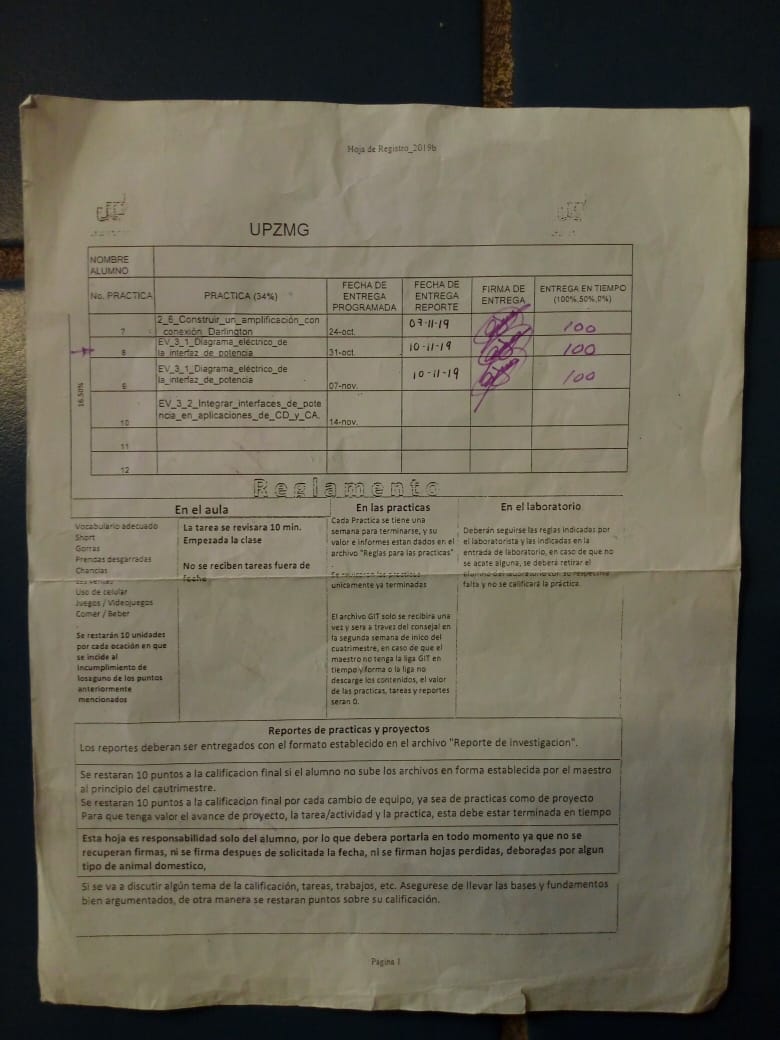 Hoja de Registro_2019b
UPZMG
NOMBRE
ALUMNO
No. PRACTICA
PRACTICA (34%)
FECHA DE
ENTREGA
PROGRAMADA
FECHA DE
ENTREGA
REPORTE
FIRMA DE
ENTREGA
ENTREGA EN TIEMPO
(100%,50%,0%)
16.50%
7
2_6_Construir_un_amplificación_con
_conexión_Darlington
24-oct.
07-11-19
100
8
EV_3_1_Diagrama_eléctrico_de
la_interfaz_de_potencia
31-oct.
10-11-19
100
9
EV_3_1_Diagrama_eléctrico_de
la_interfaz_de_potencia
07-nov.
10-11-19
100
10
EV_3_2_Integrar_interfaces_de_pote
ncia_en_aplicaciones_de_CD_y_CA.
14-nov.
11
12
Reglamento
En el aula
Vocabulario adecuado
Short
Gorras
Prendas desgarradas
Chanclas
Uso de celular
Juegos / Videojuegos
Comer / Beber
Se restarán 10 unidades
por cada ocación en que
se incide al
incumplimiento de
losaguno de los puntos
anteriormente
mencionados
La tarea se revisara 10 min.
Empezada la clase
No se reciben tareas fuera de
fecha
En las practicas
Cada Practica se tiene una
semana para terminarse, y su
valor e informes estan dados en el
archivo "Reglas para las practicas"
Se revisaran las practicas
unicamente ya terminadas
El archivo GIT solo se recibira una
vez y sera a traves del consejal en
la segunda semana de inico del
cuatrimestre, en caso de que el
maestro no tenga la liga GIT en
tiempo y forma o la liga no
descarge los contenidos, el valor
de las practicas, tareas y reportes
seran 0.
En el laboratorio
Deberán seguirse las reglas indicadas por
el laboratorista y las indicadas en la
entrada de laboratorio, en caso de que no
se acate alguna, se deberá retirar el
alumno del laboratorio con su respectiva
falta y no se calificará la práctica.
Reportes de practicas y proyectos
Los reportes deberan ser entregados con el formato establecido en el archivo "Reporte de investigacion".
Se restaran 10 puntos a la calificacion final si el alumno no sube los archivos en forma establecida por el maestro
al principio del cautrimestre.
Se restaran 10 puntos a la calificacion final por cada cambio de equipo, ya sea de practicas como de proyecto
Para que tenga valor el avance de proyecto, la tarea/actividad y la practica, esta debe estar terminada en tiempo
Esta hoja es responsabilidad solo del alumno, por lo que debera portarla en todo momento ya que no se
recuperan firmas, ni se firma despues de solicitada la fecha, ni se firman hojas perdidas, deboradas por algun
tipo de animal domestico,
Si se va a discutir algún tema de la calificación, tareas, trabajos, etc. Asegurese de llevar las bases y fundamentos
bien argumentados, de otra manera se restaran puntos sobre su calificación.
Página 1